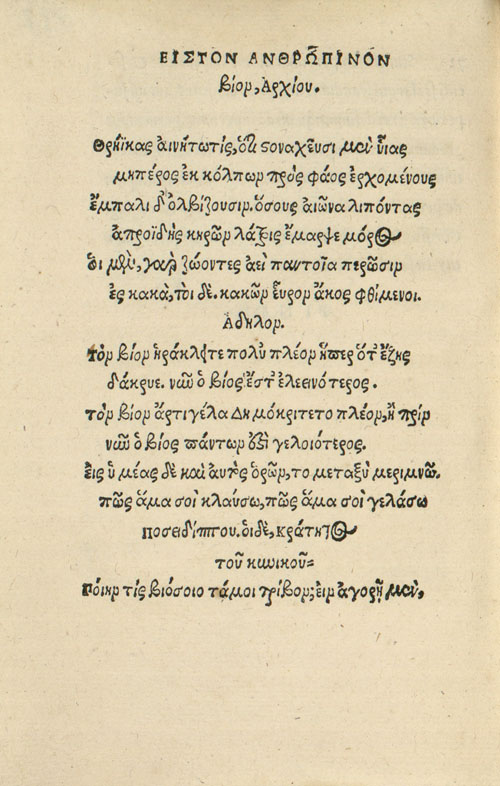 ΕΙΣ ΤΟΝ ΑΝΘΡΩΠΙΝΟΝ
βίον, Ἀρχίου.
Θρήϊκας αἰνήτω τίς, ὅτι στοναχεῦσι μὲν υἷας
μητέρος ἐκ κόλπων πρὸς φάος ἐρχομένους
ἔμπαλι δ' ὀλβίζουσιν. ὅσους αἰῶνα λιπόντας
ἀπροϊδὴς κηρῶν λάξις ἔμαρψε μόρος
οἱ μὲν, γὰρ ζώοντες ἀεὶ παντοῖα περῶσιν
ἐς κακὰ, τοὶ δὲ. κακῶν εὗρον ἄκος φθίμενοι.
Ἄδηλον.
τὸν βίον ἡράκλειτε πολὺ πλέον ἤπερ ὅτ' ἔζης
δάκρυε. νῦν ὁ βίος ἔστ' ἐλεεινότερος.
τὸν βίον ἄρτι γέλα Δημόκριτε τὸ πλέον, ἢ πρίν
νῦν ὁ βίος πάντων ὀξὶ γελοιότερος.
εἰς ὑμέας δὲ καὶ αὐτὸς ὁρῶν, το μεταξὺ μεριμνῶ.
πῶς ἅμα σοὶ κλαύσω, πῶς ἅμα σοὶ γελάσω
Ποσειδίππου. οἱ δὲ, κράτητος
τοῦ κωικοῦ=
Ποίην τίς βιόσοιο τάμοι τρίβον; εἰν ἀγορῇ μὲν,